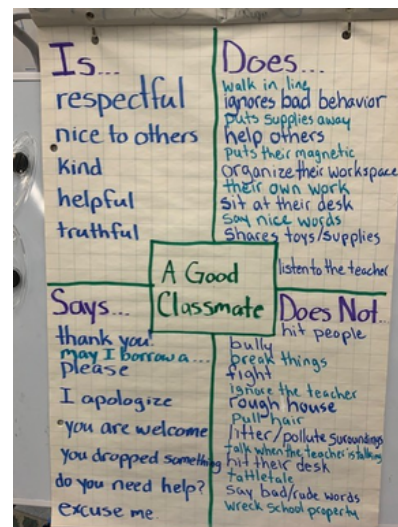 Is...
respectful
nice to others
kind
helpful
truthful
Does...
walk in line
ignores bad behavior
puts supplies away
help others
puts their magnetic
organize their workspace
their own work
sit at their desk
say nice words
Shares toys/supplies
listen to the teacher
A Good
Classmate
Says...
thank you!
may I borrow a...
please
I apologize
you are welcome
you dropped something
do you need help?
excuse me
Does Not...
hit people
bully
break things
fight
ignore the teacher
rough house
pull hair
litter/pollute suroundings
talk when the teacher is talking
hit their desk
tattletale
say bad/rude words
wreck school property